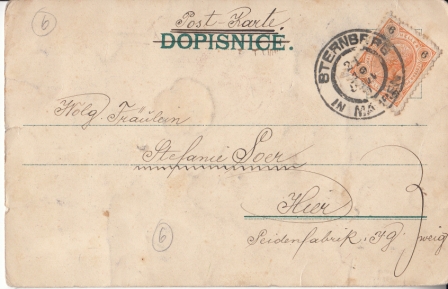 6
Post-Karte.
DOPISNICE.
STERNBERG
IN MÄHREN
6 6
Wolg. Fräulein
Stefanie Soer
Hier
3
Seidenfabrik
6